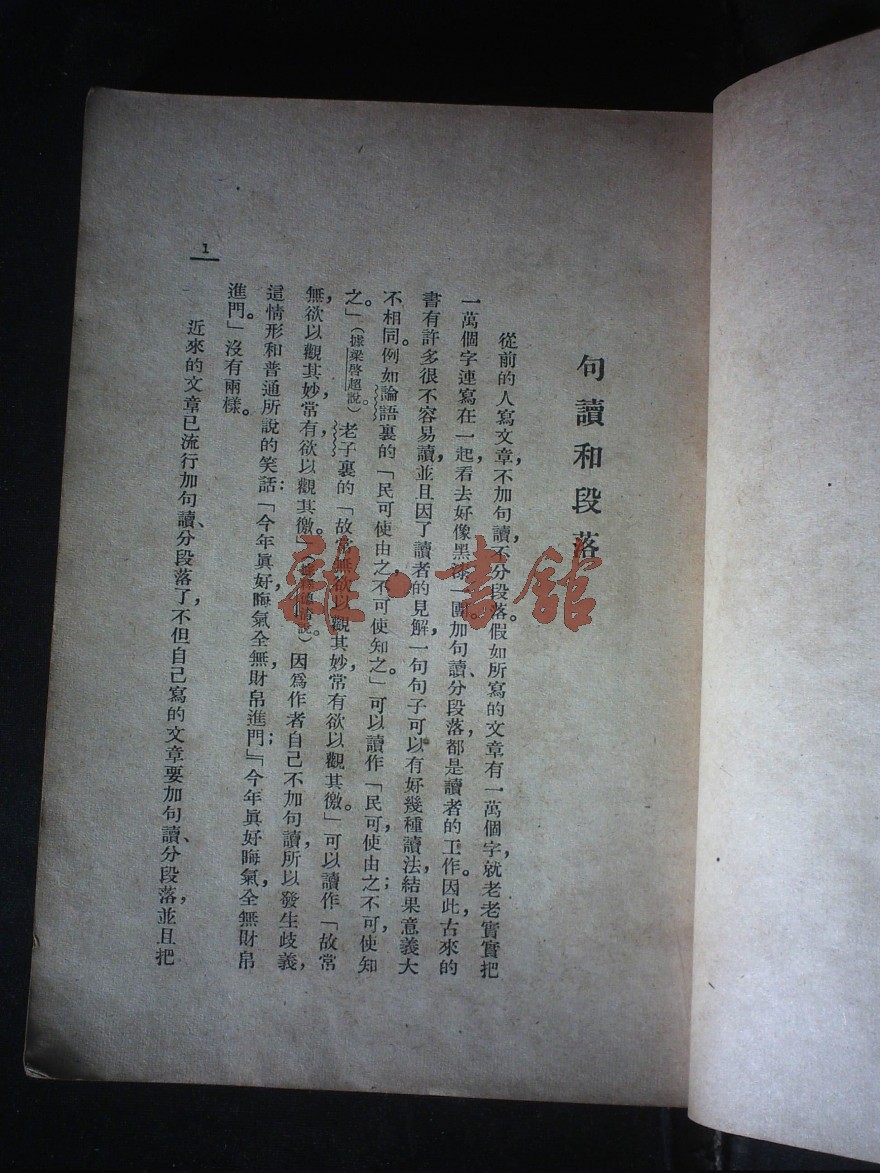 句讀和段落
從前的人寫文章,不加句讀,不分段落。假如所寫的文章有一萬個字,就老老實實把
一萬個字連寫在一起,看去好像黑漆一團。加句讀、分段落,都是讀者的工作。因此古來的
書有許多很不容易讀,並且因了讀者的見解,一句句子可以有好幾種讀法,結果意義大
不相同。例如論語裏的「民可使由之不可使知之。」可以讀作「民可,使由之;不可,使知
之。」(據梁啓超說。)老子裏的「故常無欲以觀其妙,常有欲以觀其徼。」可以讀作「故常
無,欲以觀其妙;常有,欲以觀其徼。」( 說。)因爲作者自己不加句讀,所以發生歧義,
這情形和普通所說的笑話:「今年眞好,晦氣全無,財帛進門」;「今年眞好晦氣,全無財帛
進門。」沒有兩樣。
近來的文章已流行加句讀、分段落了,不但自己寫的文章要加句讀、分段落,並且把
1
雜·書館